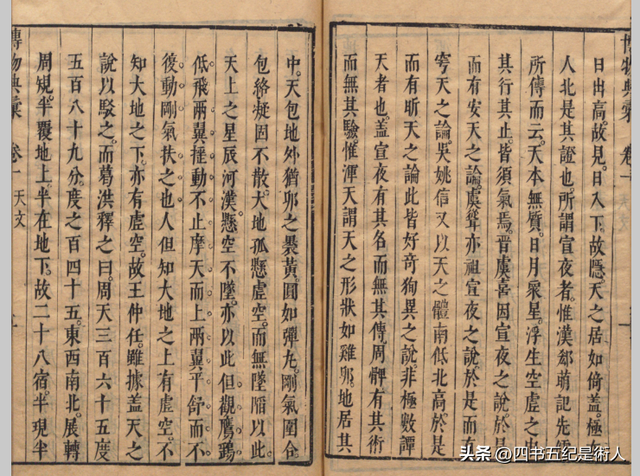 日出高故見。日入下故隱。天之居如倚蓋。極在
人北是其證也。所謂宣夜者。惟漢郗萌記先師
所傳而云。天本無質。日月衆星。浮生空虛之中
其行其止。皆須氣焉。晉虞喜因宣夜之說。於是
而有安天之論。虞聳亦祖宣夜之說。於是而有
穹天之論。吳姚信又以天之體南低北高。於是
而有昕天之論。此皆好奇狥異之說。非極數譚
天者也。蓋宣夜有其名而無其傳。周髀有其術
而無其驗。惟渾天謂天之形狀如雞卵。地居其
中。天包地外。猶卵之裹黃。圓如彈丸。剛氣圍合
包絡凝固不散。大地孤懸虛空。而無墜陷。以此
天上之星辰河漢。懸空不墜。亦以此。但觀鷹鷂
低飛。兩翼動不止。摩天而上。兩翼平舒而不
復動。剛氣扶之也。人但知大地之上有虛空。不
知大地之下。亦有虛空。故王仲任。雖據蓋天之
說以駁之。而葛洪釋之曰。周天三百六十五度
五百八十九分。度之百四十五。東西南北。展轉
周規。半覆地上。半在地下。故二十八宿半現半
博物典彙 卷一 天文
头条 @四书五纪是術人